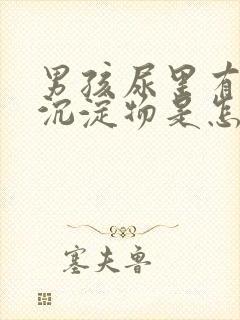 男孩尿里有
沉淀物是怎
塞夫鲁